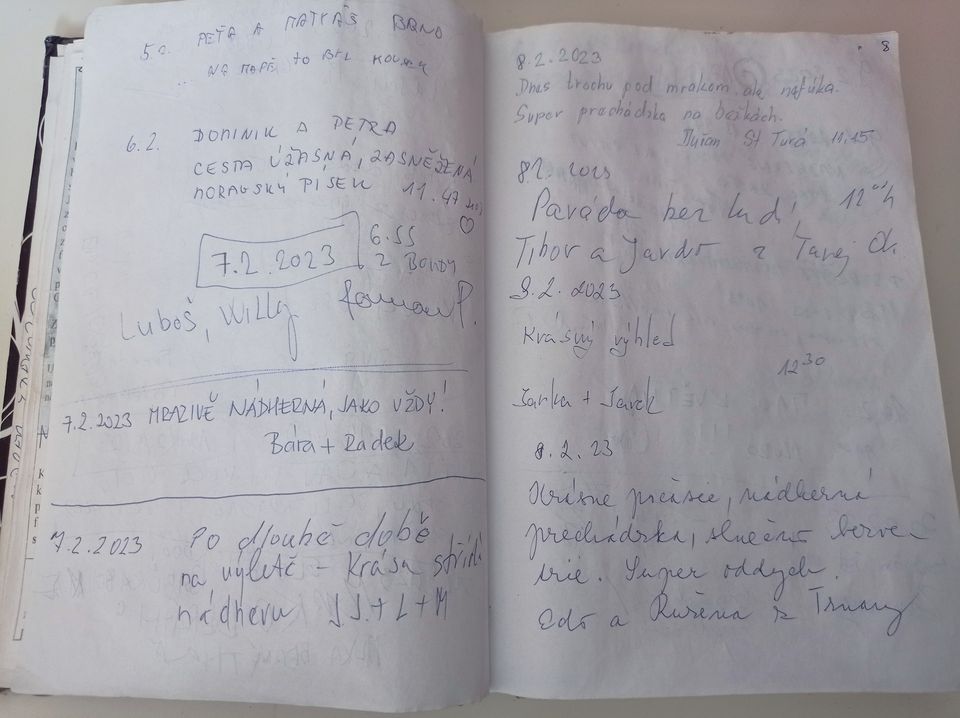 5.2. PEŤA A MATYÁŠ BRNO
NA MAPĚ to BYL KOUSEK
6.2. DOMINIK A PETRA
CESTA ÚŽASNÁ, ZASNĚŽENÁ
MORAVSKÝ PÍSEK 11.47
7.2.2023 6.SS
2 BOUDY
Luboš, Willy Roman P.
7.2.2023 MRAZIVĚ NÁDHERNÁ, JAKO VŽDY!
Bára + Radek
7.2.2023 Po dlouhé době
na výletě - Krása střídá
nádheru JJ + L + M
8
8.2.2023
Dnes trochu pod mrakom ale nefúka.
Super prechádzka na bežkách.
Dušan St Turá 11,15
8.2. 2023
Paráda bez ludí, 12⁰⁰h
Tibor a Jardo z Turej
9.2.2023
Krásný výhled
12³⁰
Šarka + Jarek
8.2.23
Krásne počasie, nádherná
prechádzka, slnečno
Super oddych.
Edo a Ružena z Trnavy